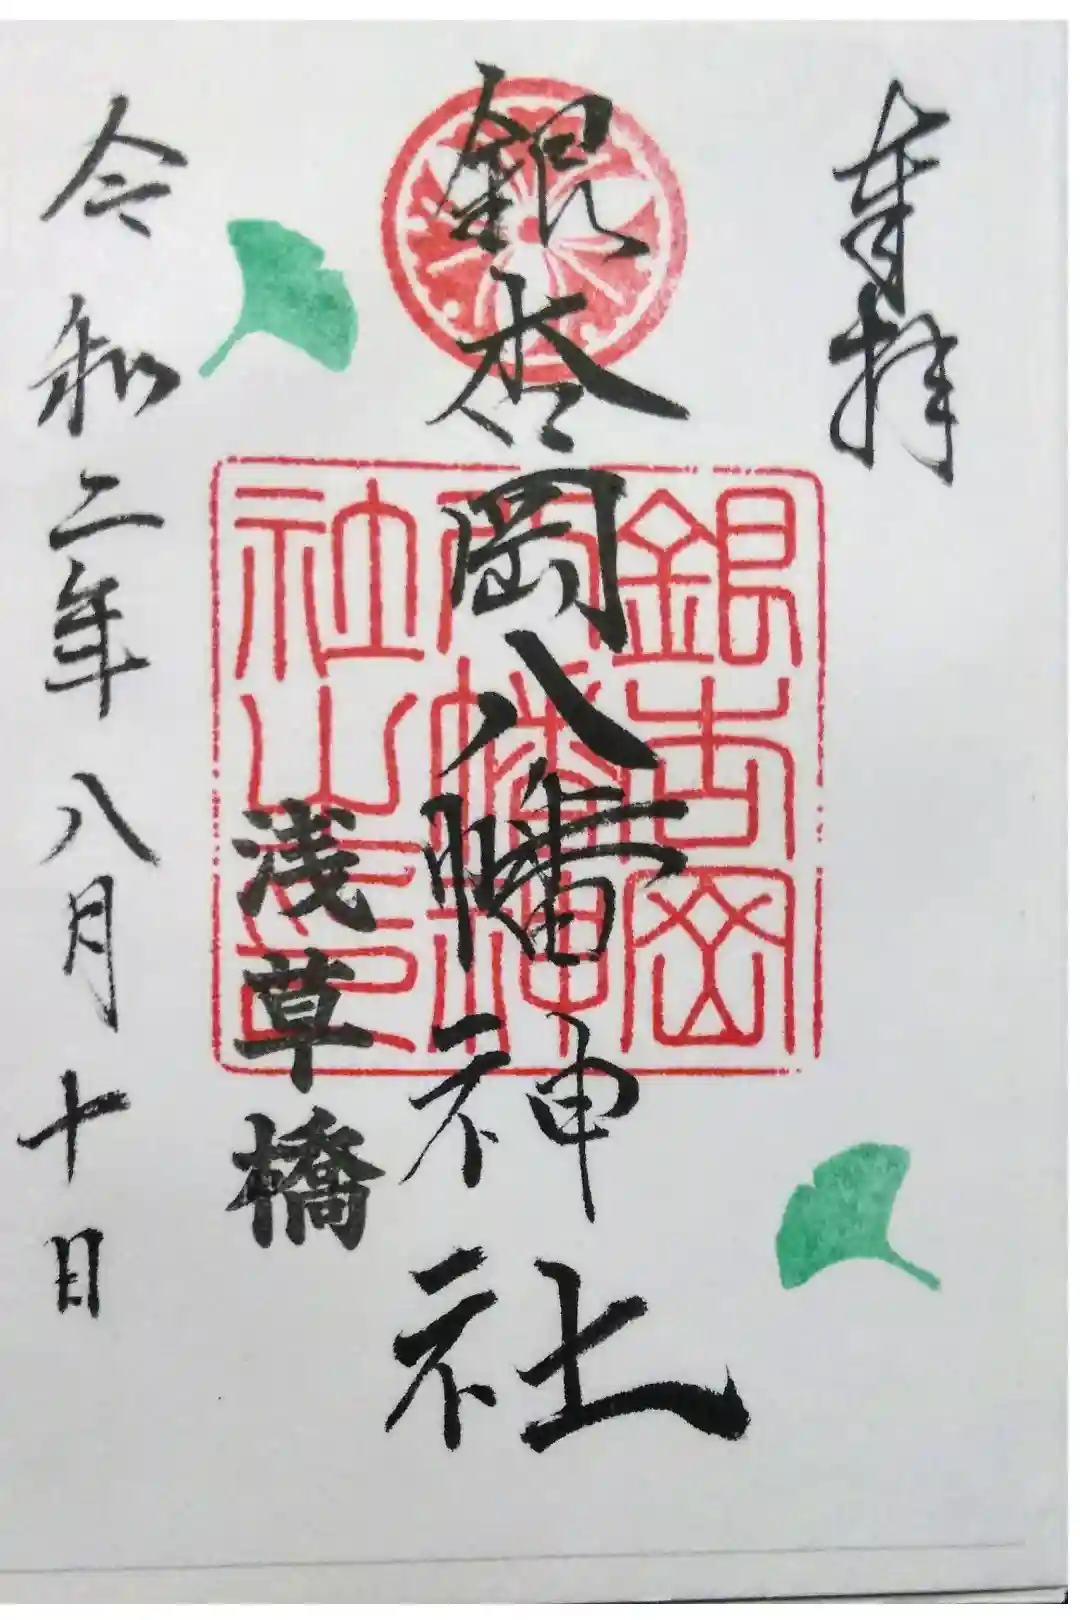 奉拝
銀杏岡八幡神社
銀杏岡
幡神
社之印
浅草橋
令和二年八月十日